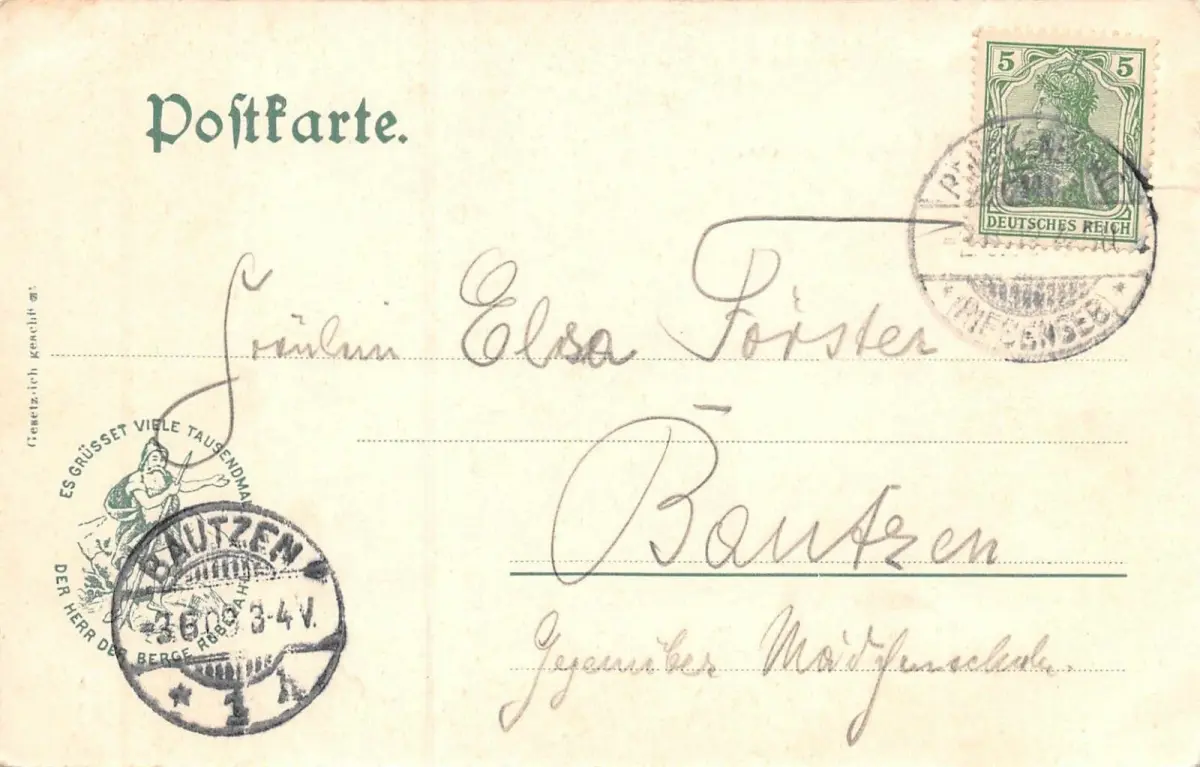 Postkarte.
5 5
DEUTSCHES REICH
(RIESENGEB)
Fräulein Elsa Förster
Bautzen
Gegenüber Mädchenschule.
Gesetzlich geschützt
ES GRÜSSET VIELE TAUSENDMAL
DER HERR DER BERGE RÜBEZAHL
BAUTZEN
3-4 V.
1